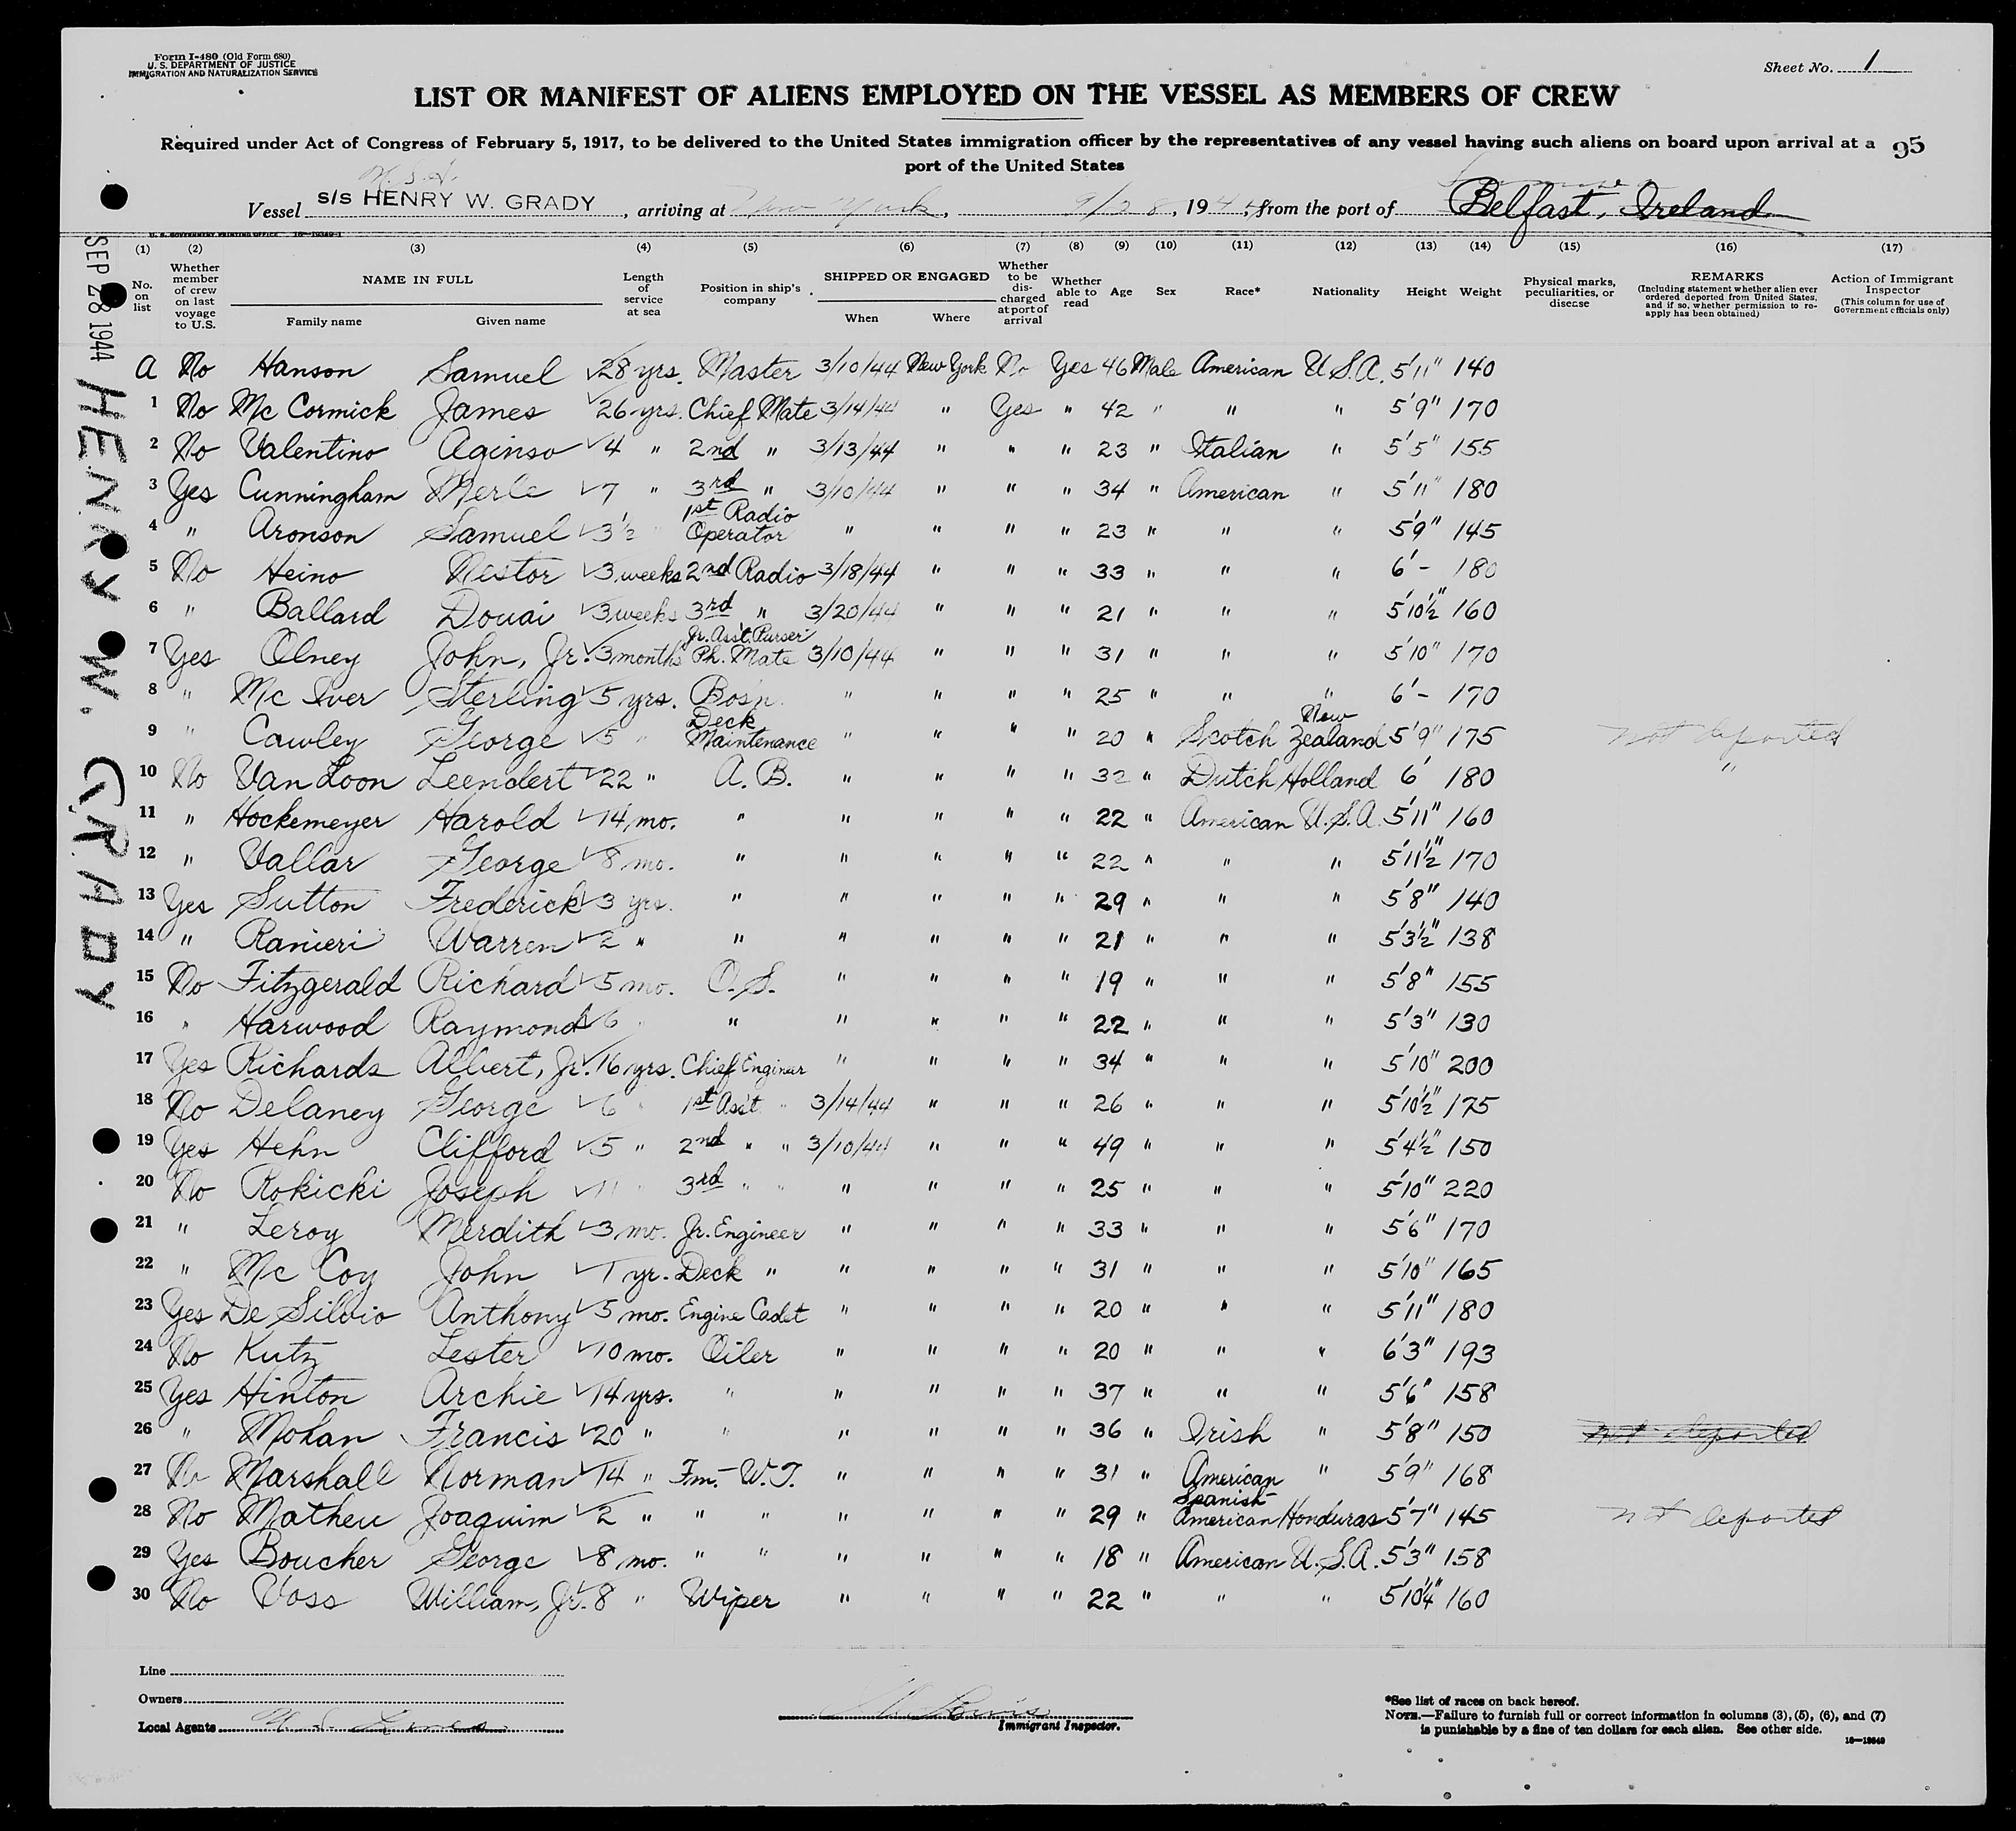 Form I-480 (Old Form 680)
U. S. DEPARTMENT OF JUSTICE
IMMIGRATION AND NATURALIZATION SERVICE
Sheet No. 1
LIST OR MANIFEST OF ALIENS EMPLOYED ON THE VESSEL AS MEMBERS OF CREW
Required under Act of Congress of February 5, 1917, to be delivered to the United States immigration officer by the representatives of any vessel having such aliens on board upon arrival at a
port of the United States
95
Vessel s/s HENRY W. GRADY, arriving at New York, 9/28, 1944, from the port of Belfast, Ireland
U. S. GOVERNMENT PRINTING OFFICE
(1) (2) (3) (4) (5) (6) (7) (8) (9) (10) (11) (12) (13) (14) (15) (16) (17)
No. on list
Whether member of crew on last voyage to U.S.
NAME IN FULL
Family name Given name
Length of service at sea
Position in ship's company
SHIPPED OR ENGAGED
When Where
Whether to be discharged at port of arrival
Whether able to read
Age
Sex
Race*
Nationality
Height
Weight
Physical marks, peculiarities, or disease
REMARKS
(Including statement whether alien ever ordered deported from United States, and if so, whether permission to reapply has been obtained)
Action of Immigrant Inspector
(This column for use of Government officials only)
SEP 28 1944
HENRY W. GRADY
A No Hanson Samuel 28 yrs. Master 3/10/44 New York No Yes 46 Male American U.S.A. 5'11" 140
1 No Mc Cormick James 26 yrs. Chief Mate 3/14/44 " Yes " 42 " " " 5'9" 170
2 No Valentino Aginso 4 " 2nd " 3/13/44 " " " 23 " Italian " 5'5" 155
3 Yes Cunningham Merle 7 " 3rd " 3/10/44 " " " 34 " American " 5'11" 180
4 " Aronson Samuel 3½ " 1st Radio Operator " " " " 23 " " " 5'9" 145
5 No Heino Nestor 3 weeks 2nd Radio 3/18/44 " " " 33 " " " 6'- 180
6 " Ballard Douai 3 weeks 3rd " 3/20/44 " " " 21 " " " 5'10½" 160
7 Yes Olney John, Jr. 3 months Jr. Ass't. Purser Ph. Mate 3/10/44 " " " 31 " " " 5'10" 170
8 " Mc Iver Sterling 5 yrs. Bos'n. " " " " 25 " " " 6'- 170
9 " Cawley George 5 " Deck Maintenance " " " " 20 " Scotch New Zealand 5'9" 175 not deported
10 No Van Loon Leendert 22 " A. B. " " " " 32 " Dutch Holland 6' 180 "
11 " Hockemeyer Harold 14 mo. " " " " " 22 " American U.S.A. 5'11" 160
12 " Vallar George 8 mo. " " " " " 22 " " " 5'11½" 170
13 Yes Sutton Frederick 3 yrs. " " " " " 29 " " " 5'8" 140
14 " Ranieri Warren 2 " " " " " " 21 " " " 5'3½" 138
15 No Fitzgerald Richard 5 mo. O.S. " " " " 19 " " " 5'8" 155
16 " Harwood Raymond 6 " " " " " " 22 " " " 5'3" 130
17 Yes Richards Albert, Jr. 16 yrs. Chief Engineer " " " " 34 " " " 5'10" 200
18 No Delaney George 6 " 1st Ass't " 3/14/44 " " " 26 " " " 5'10½" 175
19 Yes Hehn Clifford 5 " 2nd " " 3/10/44 " " " 49 " " " 5'4½" 150
20 No Rokicki Joseph 11 " 3rd " " " " " " 25 " " " 5'10" 220
21 " Leroy Merdith 3 mo. Jr. Engineer " " " " 33 " " " 5'6" 170
22 " Mc Coy John 1 yr. Deck " " " " " 31 " " " 5'10" 165
23 Yes De Silvio Anthony 5 mo. Engine Cadet " " " " 20 " " " 5'11" 180
24 No Kutz Lester 10 mo. Oiler " " " " 20 " " " 6'3" 193
25 Yes Hinton Archie 14 yrs. " " " " " 37 " " " 5'6" 158
26 " Mohan Francis 20 " " " " " " 36 " Irish " 5'8" 150 not deported
27 No Marshall Norman 14 " Fm.- W.T. " " " " 31 " American " 5'9" 168
28 No Matheu Joaquim 2 " " " " " " " 29 " Spanish- American Honduras 5'7" 145 not deported
29 Yes Boucher George 8 mo. " " " " " " 18 " American U.S.A. 5'3" 158
30 No Voss William, Jr. 8 " Wiper " " " " 22 " " " 5'10¼" 160
Line
Owners
Local Agents U.S. Lines
Immigrant Inspector.
*See list of races on back hereof.
NOTE.—Failure to furnish full or correct information in columns (3), (5), (6), and (7)
is punishable by a fine of ten dollars for each alien. See other side.